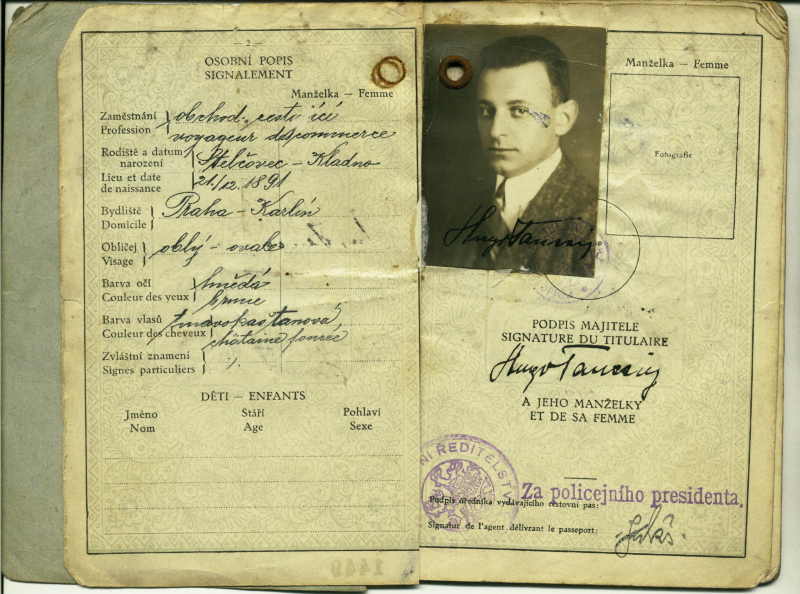 — 2 —
OSOBNÍ POPIS
SIGNALEMENT
Manželka — Femme
Zaměstnání
Profession
obchod. cestující
voyageur de commerce
Rodiště a datum
narození
Lieu et date
de naissance
Stelčovec - Kladno
21./12. 1891
Bydliště
Domicile
Praha - Karlín
Obličej
Visage
oblý - ovale
Barva očí
Couleur des yeux
hnědá
brune
Barva vlasů
Couleur des cheveux
tmavokaštanová
châtaine foncée
Zvláštní znamení
Signes particuliers
DĚTI — ENFANTS
Jméno Stáří Pohlaví
Nom Age Sexe
Manželka — Femme
Fotografie
Hugo
PODPIS MAJITELE
SIGNATURE DU TITULAIRE
Hugo
A JEHO MANŽELKY
ET DE SA FEMME
NÍ ŘEDITELSTV
Za policejního presidenta.
Podpis úředníka vydávajícího cestovní pas:
Signatur de l'agent délivrant le passeport:
1449